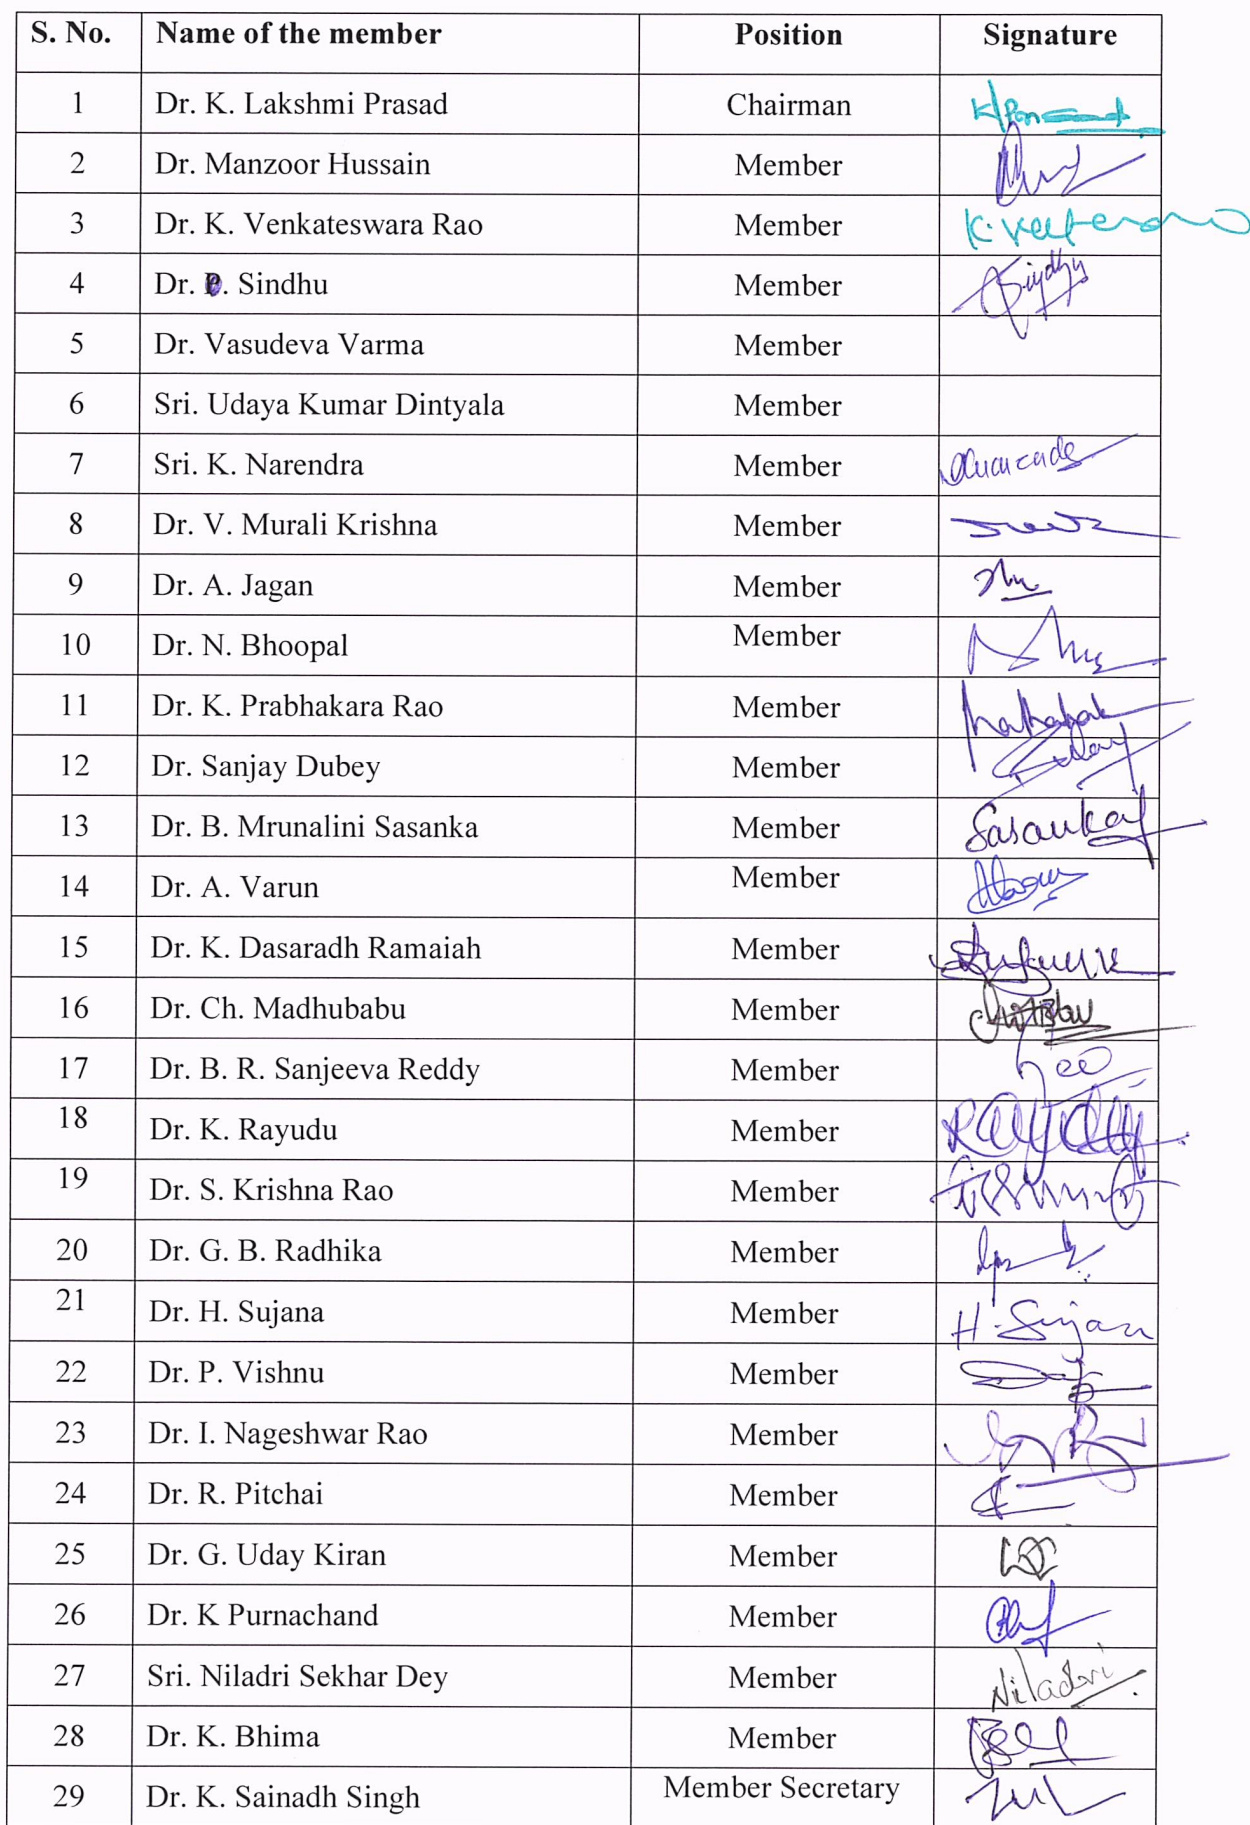 S. No. Name of the member Position Signature
1 Dr. K. Lakshmi Prasad Chairman
2 Dr. Manzoor Hussain Member
3 Dr. K. Venkateswara Rao Member
4 Dr. Sindhu Member Sindhu
5 Dr. Vasudeva Varma Member
6 Sri. Udaya Kumar Dintyala Member
7 Sri. K. Narendra Member
8 Dr. V. Murali Krishna Member
9 Dr. A. Jagan Member
10 Dr. N. Bhoopal Member
11 Dr. K. Prabhakara Rao Member
12 Dr. Sanjay Dubey Member
13 Dr. B. Mrunalini Sasanka Member Sasanka
14 Dr. A. Varun Member
15 Dr. K. Dasaradh Ramaiah Member
16 Dr. Ch. Madhubabu Member
17 Dr. B. R. Sanjeeva Reddy Member
18 Dr. K. Rayudu Member Rayudu
19 Dr. S. Krishna Rao Member
20 Dr. G. B. Radhika Member
21 Dr. H. Sujana Member H. Sujana
22 Dr. P. Vishnu Member
23 Dr. I. Nageshwar Rao Member
24 Dr. R. Pitchai Member
25 Dr. G. Uday Kiran Member
26 Dr. K Purnachand Member
27 Sri. Niladri Sekhar Dey Member Niladri
28 Dr. K. Bhima Member
29 Dr. K. Sainadh Singh Member Secretary